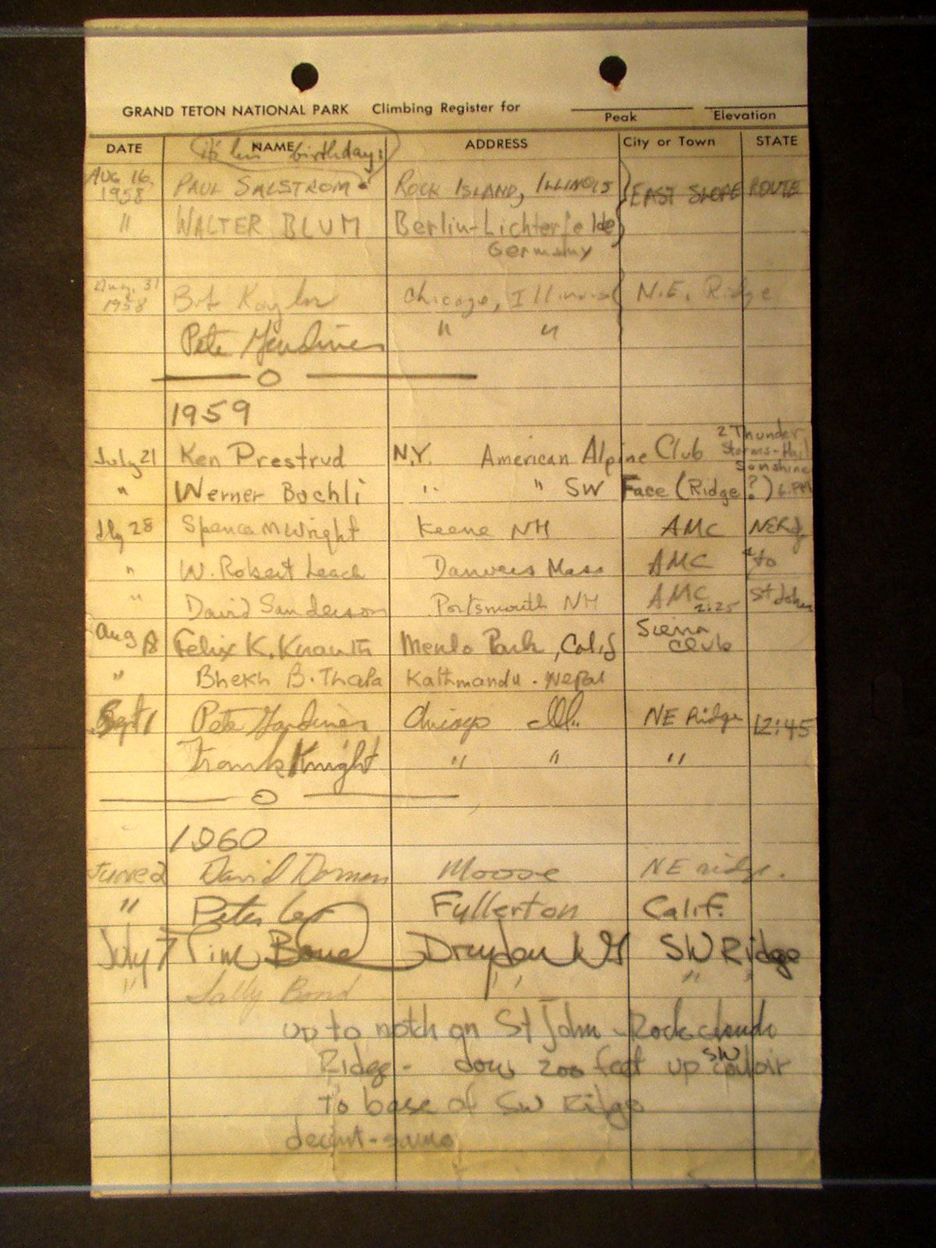 GRAND TETON NATIONAL PARK Climbing Register for Peak Elevation
DATE NAME ADDRESS City or Town STATE
it's his birthday!
AUG 16, 1958 PAUL SALSTROM ROCK ISLAND, ILLINOIS EAST SLOPE ROUTE
" WALTER BLUM Berlin-Lichterfelde
Germany
Aug. 31 1958 Chicago, Illinois N.E. Ridge
Pete " "
1959
July 21 Ken Prestrud N.Y. American Alpine Club 2 Thunder Storms - Hail Sunshine
" Werner Bochli " " SW Face (Ridge?) 6 PM
28 Spencer Wright Keene NH AMC NE Rdg
" W. Robert Leach Danvers Mass AMC to
" David Sanderson Portsmouth NH AMC 2:25 St John
Aug 18 Felix K. Knauth Menlo Park, Calif Sierra Club
" Bhekh B. Thapa Kathmandu - Nepal
Sept 1 Pete Chicago Ill. NE Ridge 12:45
Frank Knight " " "
1960
June 2 David Dornan Moose NE ridge.
" Peter Fullerton Calif.
July 7 Tim Bond Dryden SW Ridge
" Sally Bond " " " "
up to notch on St John - Rockchuck
Ridge - down 200 feet up SW couloir
To base of SW Ridge
decent - same